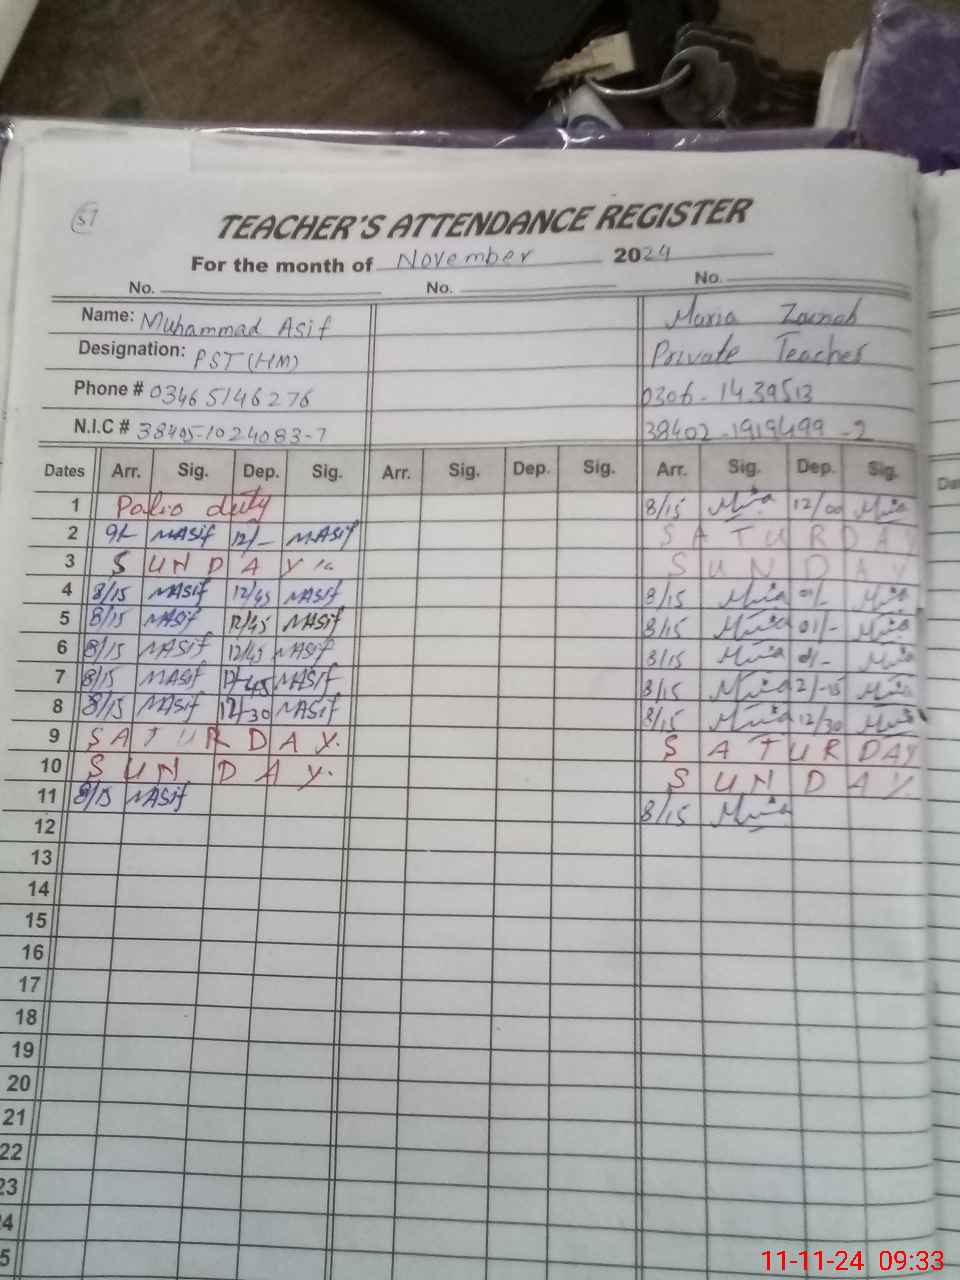 57
TEACHER'S ATTENDANCE REGISTER
For the month of November 2024
No. No. No.
Name: Muhammad Asif Maria Zainab
Designation: PST (HM) Private Teacher
Phone # 03465146276 0306-1439513
N.I.C # 38405-1024083-7 38402-1919499-2
Dates Arr. Sig. Dep. Sig. Arr. Sig. Dep. Sig. Arr. Sig. Dep. Sig.
1 Polio duty 8/15 12/00
2 9/- MASif 12/- MASif SATURDAY
3 SUNDAY SUNDAY
4 8/15 MASif 12/45 MASif 8/15 01/-
5 8/15 MASif 12/45 MASif 8/15 01/-
6 8/15 MASif 12/45 MASif 8/15
7 8/15 MASif 12/-45 MASif 8/15
8 8/15 MASif 12/-30 MASif 8/15 12/30
9 SATURDAY. SATURDAY
10 SUNDAY. SUNDAY
11 8/15 MASif 8/15
12
13
14
15
16
17
18
19
20
21
22
23
11-11-24 09:33